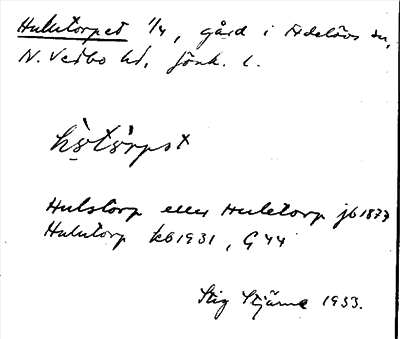 Hulutorpet 1/4, gård i Adelövs sn,
N. Vedbo hd, Jönk. l.
Hulstorp eller Huletorp jb 1877
Hulutorp kb 1931, G 44
Stig Stjärne 1933.